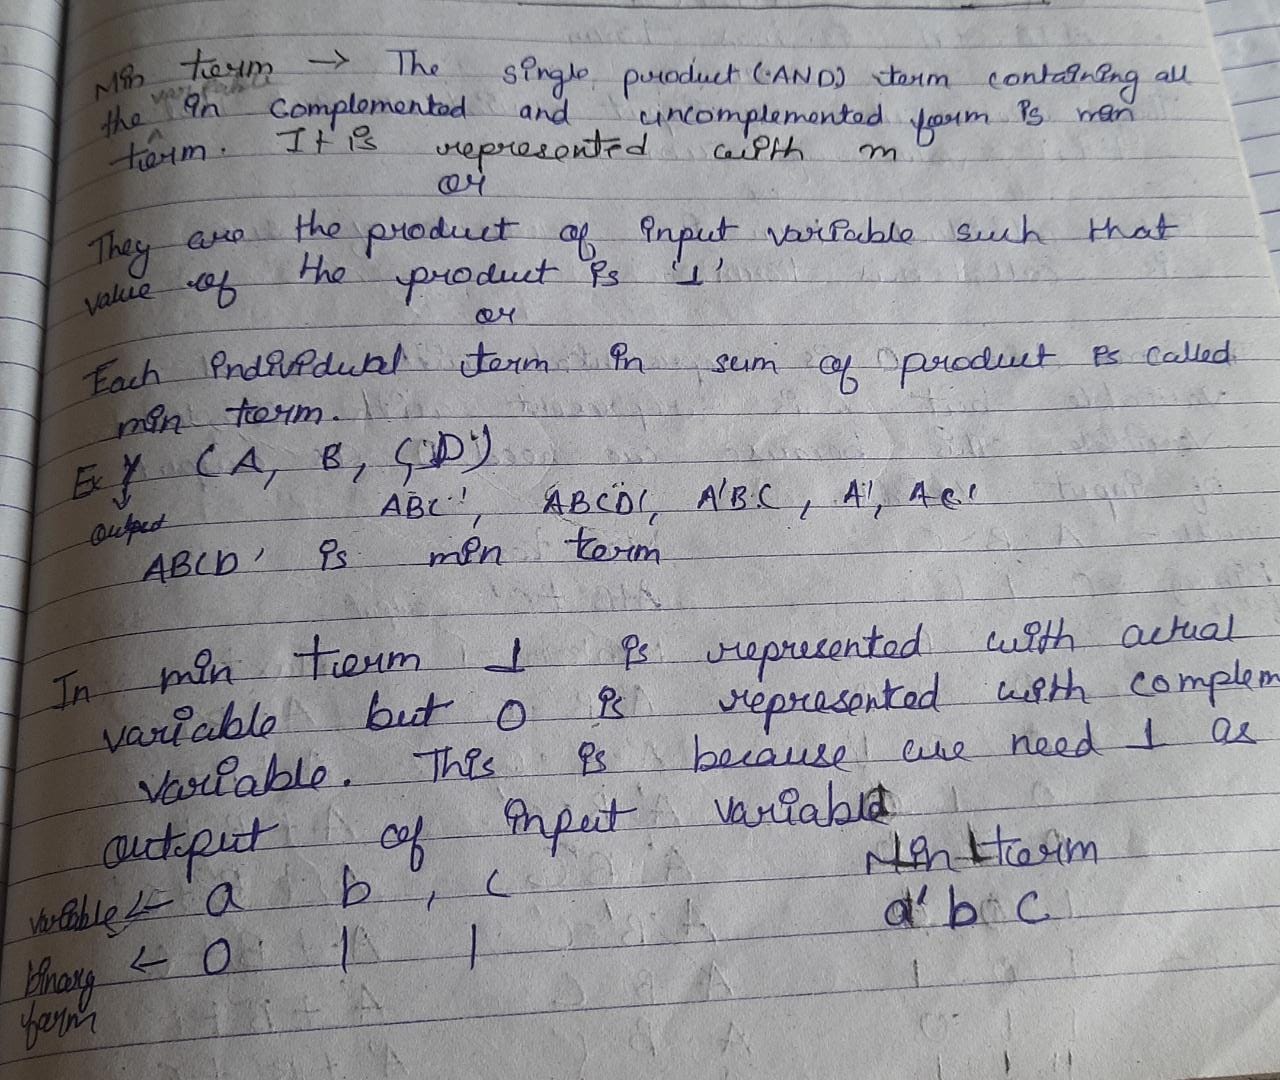 Min term → The single product (AND) term containing all
variable
the ^ in complemented and uncomplemented form is min
term. It is represented with m
or
They are the product of input variable such that
value of the product is '1'
or
Each individual term in sum of product is called
min term.
Ex Y (A, B, C, D)
output
ABC', ABCD', A'BC, A', AC'
ABCD' is min term
In min term 1 is represented with actual
variable but 0 is represented with complem
variable. This is because we need 1 as
output of input variable
Min term
variable ← a b , c
a' b c
binary ← 0 1 1
form